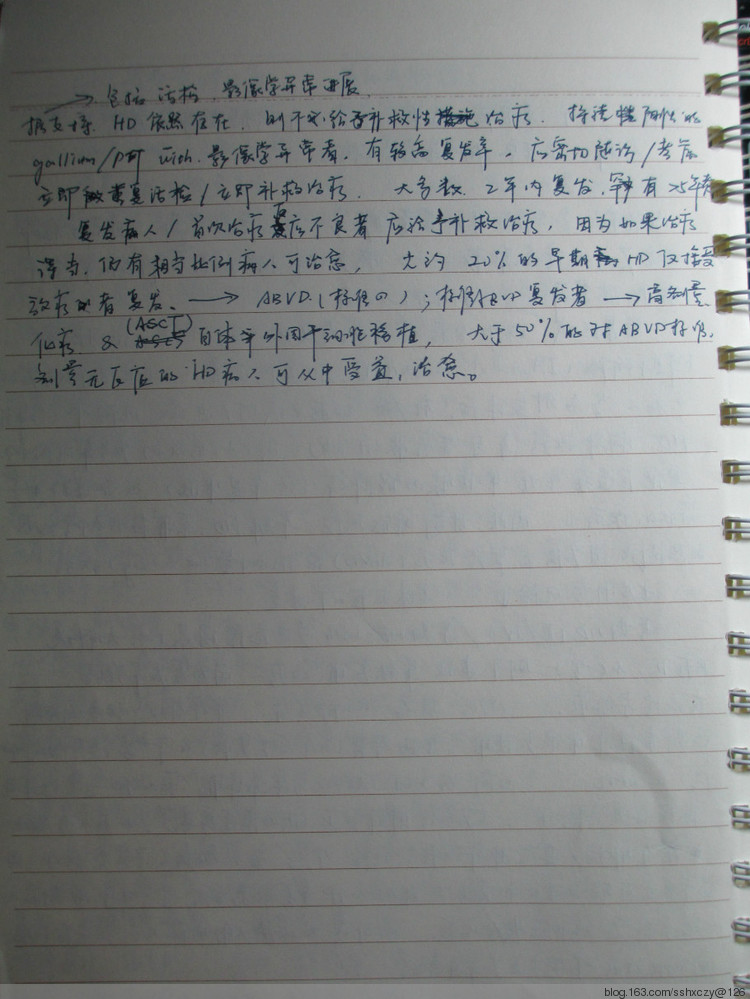 → 包括活检,影像学异常进展.
据支持 HD 依然存在,则予以给予补救性治疗. 持续阳性的
gallium/PET with 影像学异常者,有较高复发率,应密切随访/考虑
立即做重复活检/立即补救治疗. 大多数 2年内复发,罕有 >5年者
复发病人/首次治疗反应不良者 应给予补救治疗,因为如果治疗
得当,仍有相当比例病人可治愈, 大约 20%的早期 HD 仅接受
放疗者复发. → ABVD (标准的); 标准ABVD复发者 → 高剂量
化疗 & (ASCT) 自体外周干细胞移植, 大于50%的对ABVD标准
剂量无反应的HD病人可从中受益,治愈。
blog.163.com/sshxczy@126